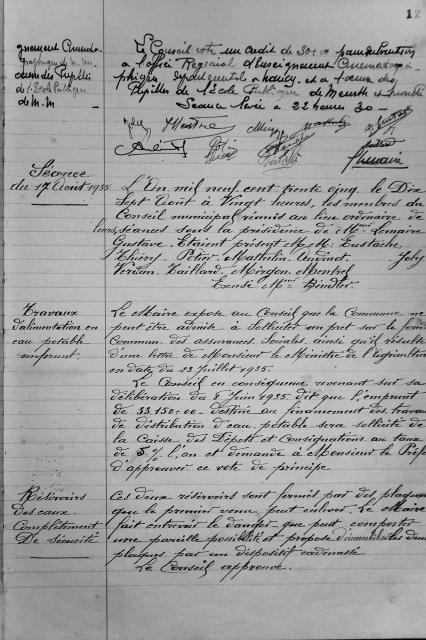 12
gnement Cinémato-
graphique de M. M.
œuvre des Pupilles
de l'École Publique
de M. M
Le Conseil vote un crédit de 30 pour
à l'office Régional d'Enseignement Cinématogra-
phique départemental à Nancy et à l'œuvre des
Pupilles de l'École Publique de Meurthe et Moselle
Séance levée à 22 heures 30 -
Séance
du 17 Août 1935.
L'An mil neuf cent trente cinq le Dix
Sept Août à Vingt heures, les membres du
Conseil municipal réunis au lieu ordinaire de
leurs séances sous la présidence de Lemaire
Gustave. Etaient présent M. M. Eustache
Thiéry. Peltier. Mathelin. Joly
Vernun. Taillard. Mirgon. Mentrel
Excusé Bindler.
Travaux
d'alimentation en
eau potable
emprunt.
Le Maire expose au Conseil que la Commune ne
peut être admise à Solliciter un prêt sur le fond
Commun des assurances Sociales ainsi qu'il résulte
d'une lettre de Monsieur le Ministre de l'Agriculture
en date du 23 Juillet 1935.
Le Conseil en conséquence revenant sur sa
délibération du 8 Juin 1935 dit que l'emprunt
de 33.150-00 destiné au financement des travaux
de distribution d'eau potable sera sollicité de
la Caisse des Dépôts et Consignations au taux
de 5% l'an et demande à Monsieur le Préfet
d'approuver ce vote de principe
Réservoirs
des eaux.
Complètement
De Sécurité
Ces deux réservoirs sont fermés par des plaques
que le premier venu peut enlever. Le Maire
fait entrevoir le danger que peut comporter
une pareille possibilité et propose d'immobiliser les deux
plaques par un dispositif cadenassé
Le Conseil approuve.